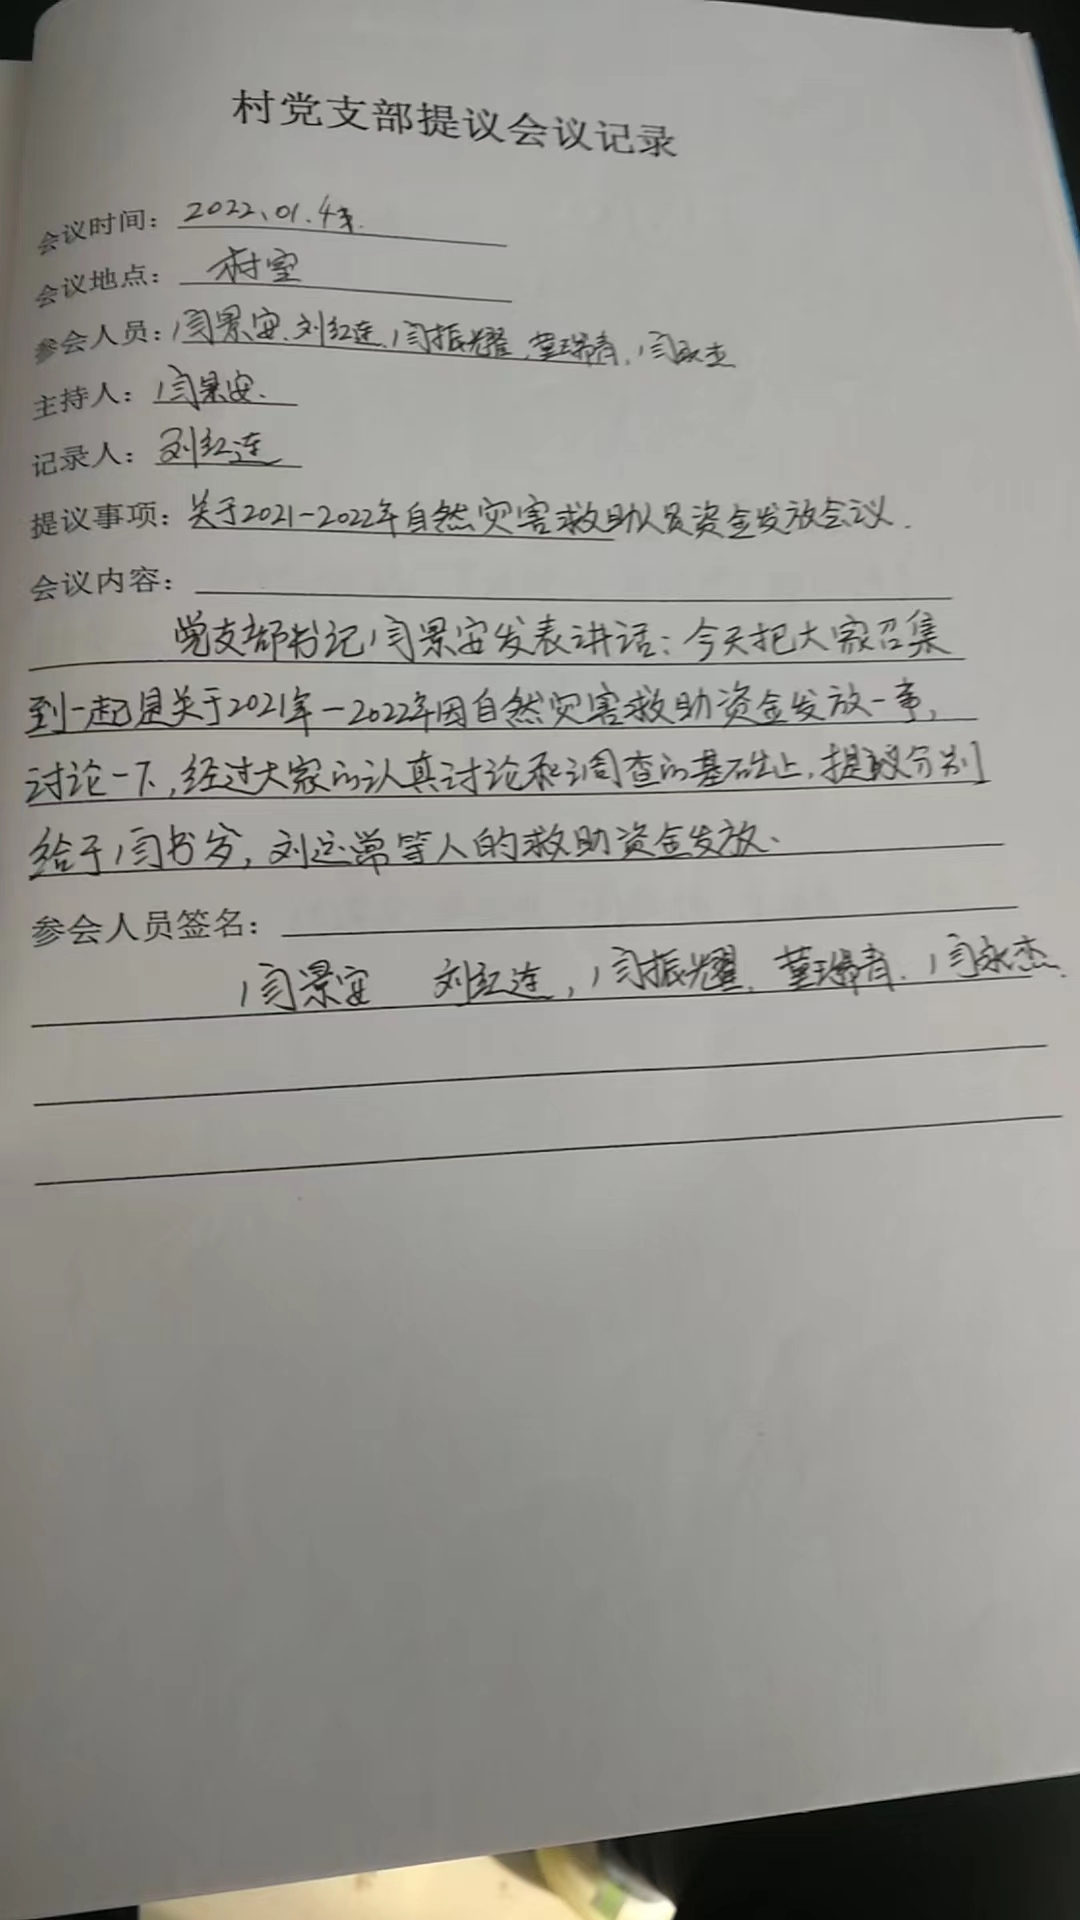 村党支部提议会议记录
会议时间：2022、01.4
会议地点：村室
参会人员：闫景安、刘红连、闫振耀、董瑞青、闫永杰
主持人：闫景安.
记录人：刘红连
提议事项：关于2021-2022年自然灾害救助人员资金发放会议.
会议内容：
党支部书记闫景安发表讲话：今天把大家召集
到一起是关于2021年—2022年因自然灾害救助资金发放一事，
讨论一下，经过大家的认真讨论和调查的基础上，提议分别
给于闫书岁，刘运常等人的救助资金发放、
参会人员签名：
闫景安 刘红连，闫振耀、董瑞青、闫永杰.